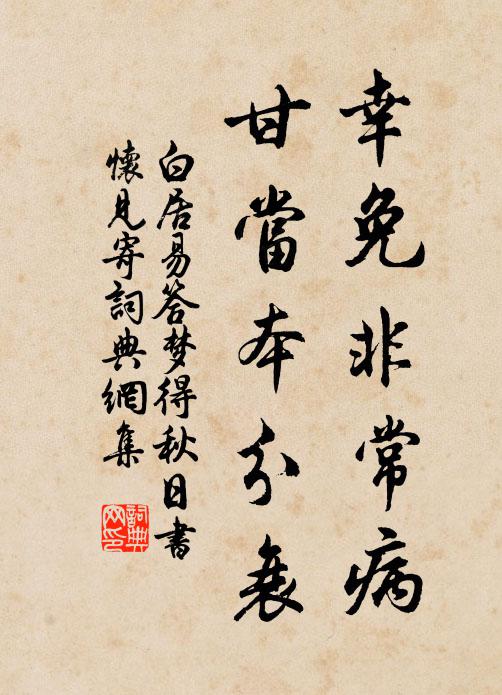 幸免非常病
甘當本分衰
白居易答梦得秋日書
懷見寄詞典網集
詞典网印